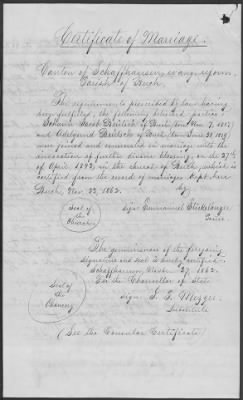 Certificate of Marriage.
Canton of Schaffhausen, evang. reform.
Parish of Buch.
The requirements prescribed by law having
been fulfilled, the following betrothed parties:
Jacob of Buch, born Nov. 7. 1817,
and of Buch, born June 30. 1819
were joined and announced in marriage with the
invocation of further divine blessing, on the 27th
of April 1842, in the church at Buch, which is
certified from the record of marriages, Dept. here
Buch, Nov. 22. 1862. By
Seal of
the
Church
sign: Emmanuel Stickelberger,
The genuineness of the foregoing
signature and seal is hereby certified.
Schaffhausen, Novbr. 27. 1862.
For the Chancellor of State
sign:
Substitute
Seal
of
the
Chancery
(See the Consular Certificate)